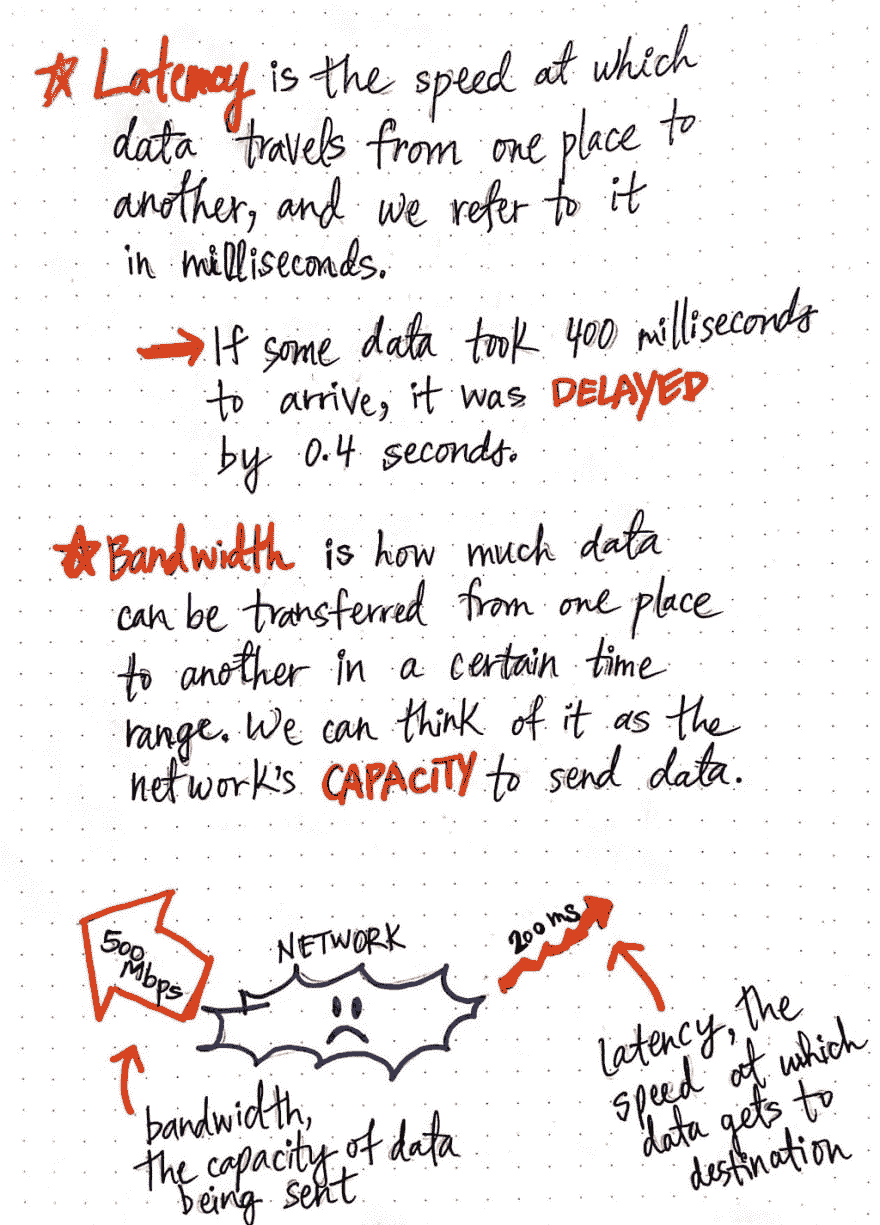 Latency is the speed at which
data travels from one place to
another, and we refer to it
in milliseconds.
If some data took 400 milliseconds
to arrive, it was DELAYED
by 0.4 seconds.
Bandwidth is how much data
can be transferred from one place
to another in a certain time
range. We can think of it as the
network's CAPACITY to send data.
500
Mbps
NETWORK
200 ms
bandwidth,
the capacity of data
being sent
latency, the
speed at which
data gets to
destination